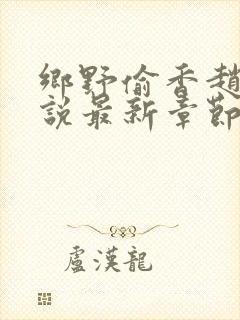 鄉野偷香趙
說最新章節
盧漢龍